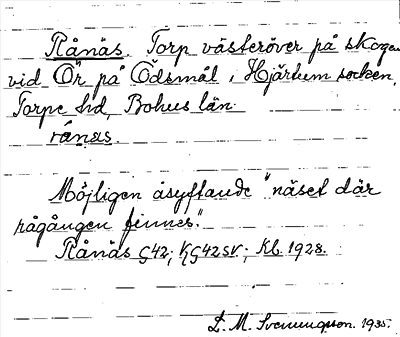 Rånäs. Torp västeröver på skogen
vid Ör på Ödsmål i Hjärtum socken,
Torpe hd, Bohus län.
rånas.
Möjligen åsyftande "näset där
rågången finnes".
Rånäs G42; KG42SV; Kl. 1928.
L. M. Svenungsson. 1935.